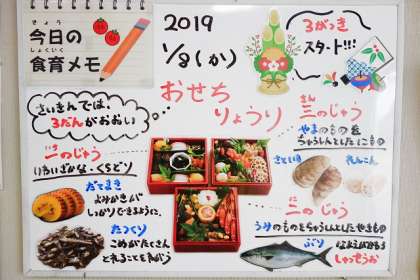 きょう
今日の
しょくいく
食育メモ
2019
1/8(か)
3がっき
スタート!!!
おせち
りょうり
さいきんでは、
3だんがおおい
いち
一のじゅう
いわいざかな・くちどり
だてまき
よみかきが
しっかりできるように。
たつくり
こめがたくさん
とれることをねがう
さん
三のじゅう
やまのものを
ちゅうしんとしたにもの
さといも
れんこん
に
二のじゅう
うみのものをちゅうしんとしたやきもの
ぶり
しゅっせうお